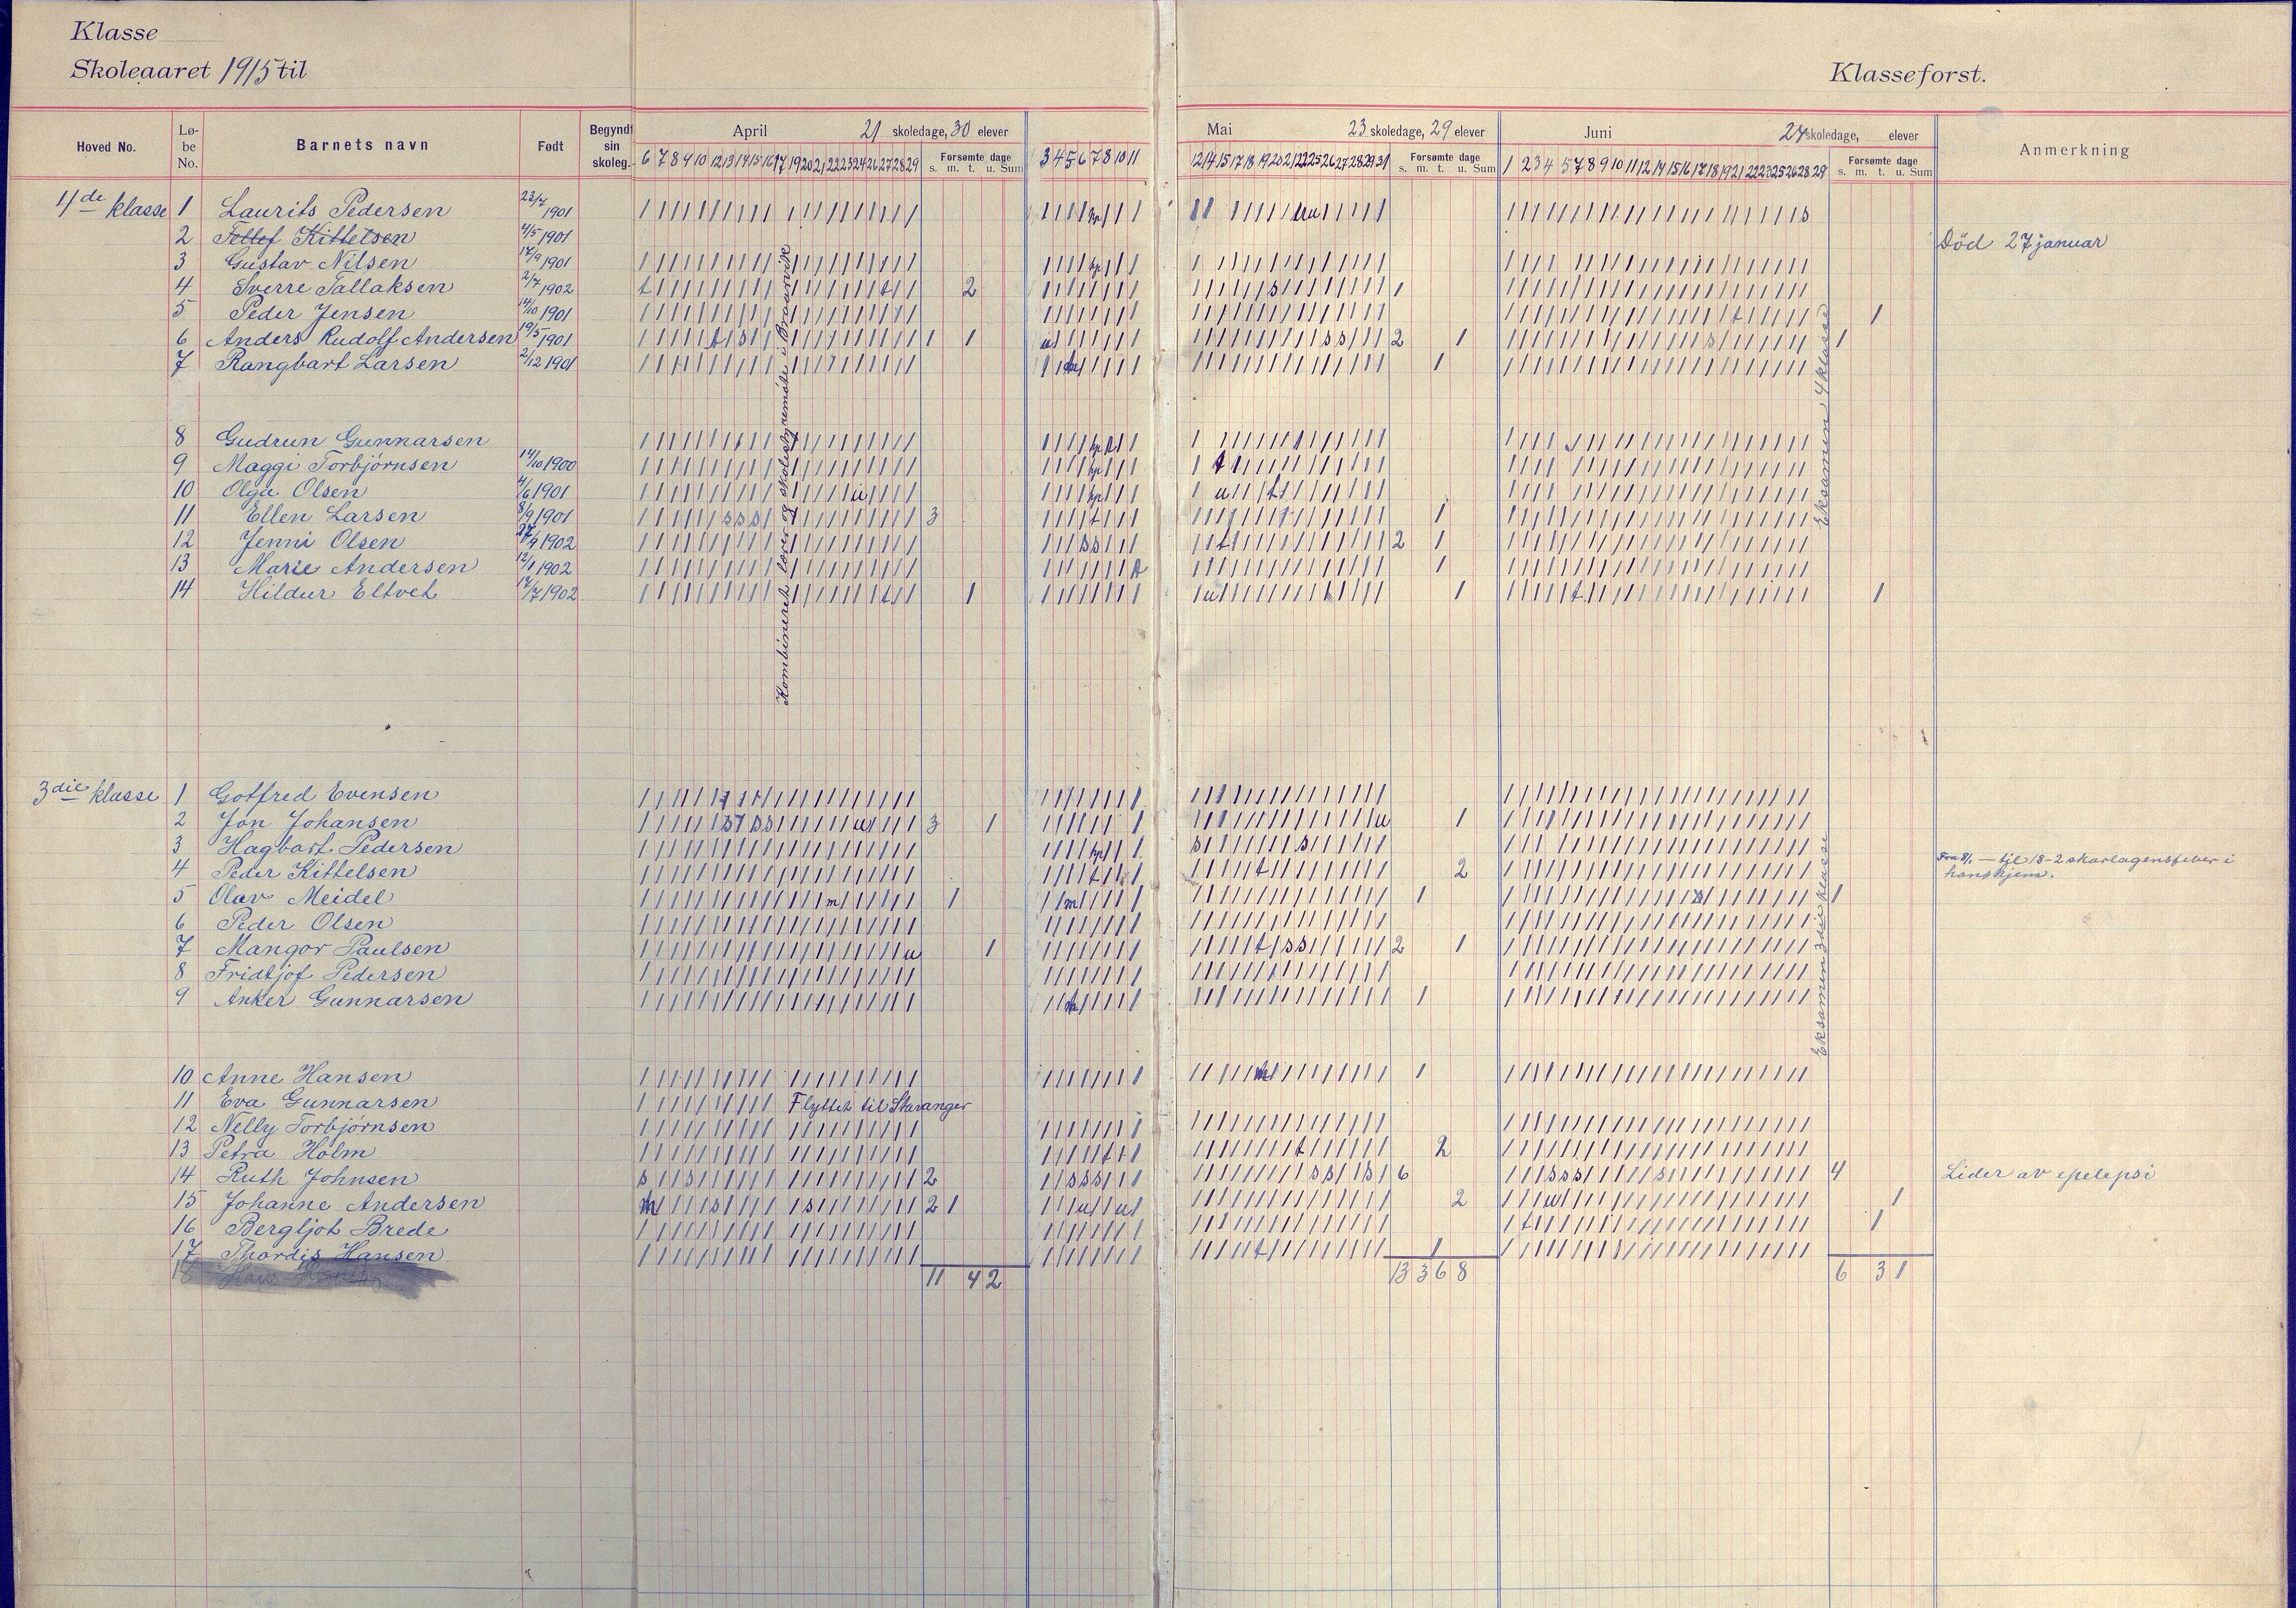 Klasse
Skoleaaret 1915 til
Klasseforst.
Hoved No.
Lø-be No.
Barnets navn
Født
Begyndt sin skoleg.
April 21 skoledage, 30 elever
6 7 8 9 10 12 13 14 15 16 17 19 20 21 22 23 24 26 27 28 29
Forsømte dage
s. m. t. u. Sum
3 4 5 6 7 8 10 11
Mai 23 skoledage, 29 elever
12 14 15 17 18 19 20 21 22 25 26 27 28 29 31
Forsømte dage
s. m. t. u. Sum
Juni 24 skoledage, elever
1 2 3 4 5 7 8 9 10 11 12 14 15 16 17 18 19 21 22 23 25 26 28 29
Forsømte dage
s. m. t. u. Sum
Anmerkning
4de klasse 1 Laurits Pedersen 23/7 1901
2 Tellef Kittelsen 4/5 1901 Död 27 januar
3 Gustav Nilsen 17/9 1901
4 Sverre Tallaksen 2/7 1902 2 1
5 Peder Jensen 14/10 1901 1
6 Anders Rudolf Andersen 19/5 1901 1 1 2 1 1
7 Rangbart Larsen 2/12 1901 1
8 Gudrun Gunnarsen
9 Maggi Torbjörnsen 14/10 1900
10 Olga Olsen 4/6 1901
11 Ellen Larsen 8/9 1901 3 1
12 Jenni Olsen 1902 2 1
13 Marie Andersen 12/1 1902 1
14 Hildur Eltvet 17/7 1902 1 1 1
Kombineret lærer og skolestyremöte i
Eksamen 4 klasse
3die klasse 1 Gotfred Evensen
2 Jon Johansen 3 1 1
3 Hagbart Pedersen
4 Peder Kittelsen 2 Fra 8/1 — til 18-2 skarlagensfeber i
hans hjem.
5 Olav Meidel 1 1 1
6 Peder Olsen
7 Mangor Paulsen 1 2 1
8 Fridtjof Pedersen
9 Anker Gunnarsen 1
Eksamen 3die klasse
10 Anne Hansen 1
11 Eva Gunnarsen Flyttet til Stavanger
12 Nelly Torbjörnsen
13 Petra Holm 2
14 Ruth Johnsen 2 6 4 Lider av epelepsi
15 Johanne Andersen 2 1 2 1
16 Bergljot Brede 1
17 Thordis Hansen 1
18
11 4 2 13 3 6 8 6 3 1